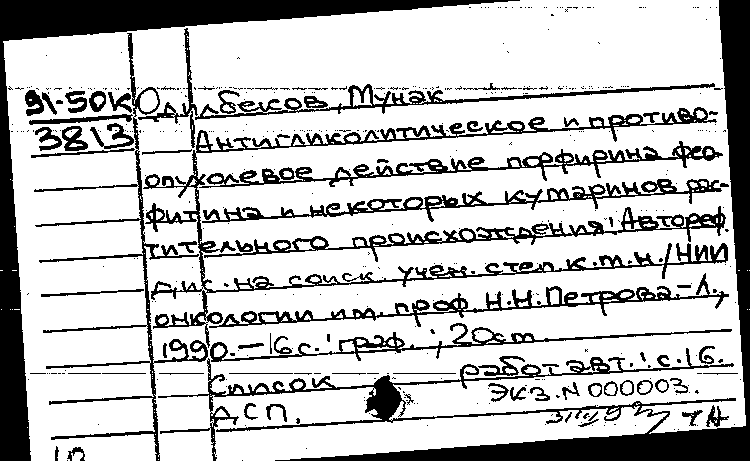 91-50К Одилбеков, Мунак
3813 Антигликолитическое и противо-
опухолевое действие порфирина фео-
фитина и некоторых кумаринов рас-
тительного происхождения: Автореф.
дис. на соиск. учен. степ. к.м.н./НИИ
онкологии им. проф. Н.Н.Петрова.-Л.,
1990.-16с.:граф.; 20см
Список работ авт.: с.16.
ДСП. ЭКЗ.N 000003.